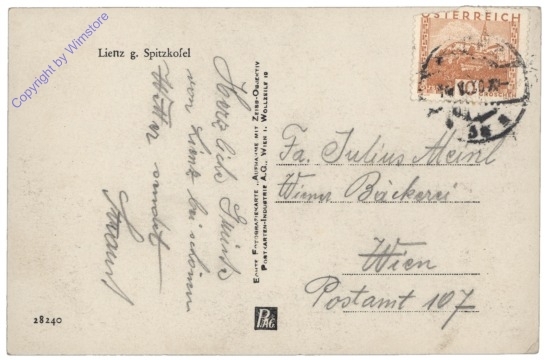 Copyright by Wimstore
Lienz g. Spitzkofel
Herzliche Grüße
von Lienz bei schönem
Wetter sendet
28240
ECHTE FOTOGRAFIEKARTE, AUFNAHME MIT ZEISS-OBJEKTIV
POSTKARTEN-INDUSTRIE A.G., WIEN I. WOLLZEILE 18
PAG
ÖSTERREICH
GROSCHEN
Fa. Julius Meinl
Wiener Bäckerei
Wien
Postamt 107